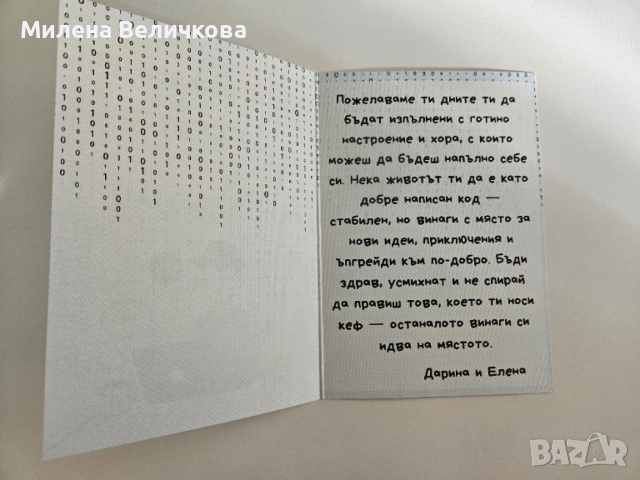 Милена Величкова
Пожелаваме ти дните ти да
бъдат изпълнени с готино
настроение и хора, с които
можеш да бъдеш напълно себе
си. Нека животът ти да е като
добре написан код —
стабилен, но винаги с място за
нови идеи, приключения и
ъпгрейди към по-добро. Бъди
здрав, усмихнат и не спирай
да правиш това, което ти носи
кеф — останалото винаги си
идва на мястото.
Дарина и Елена
BAZAR